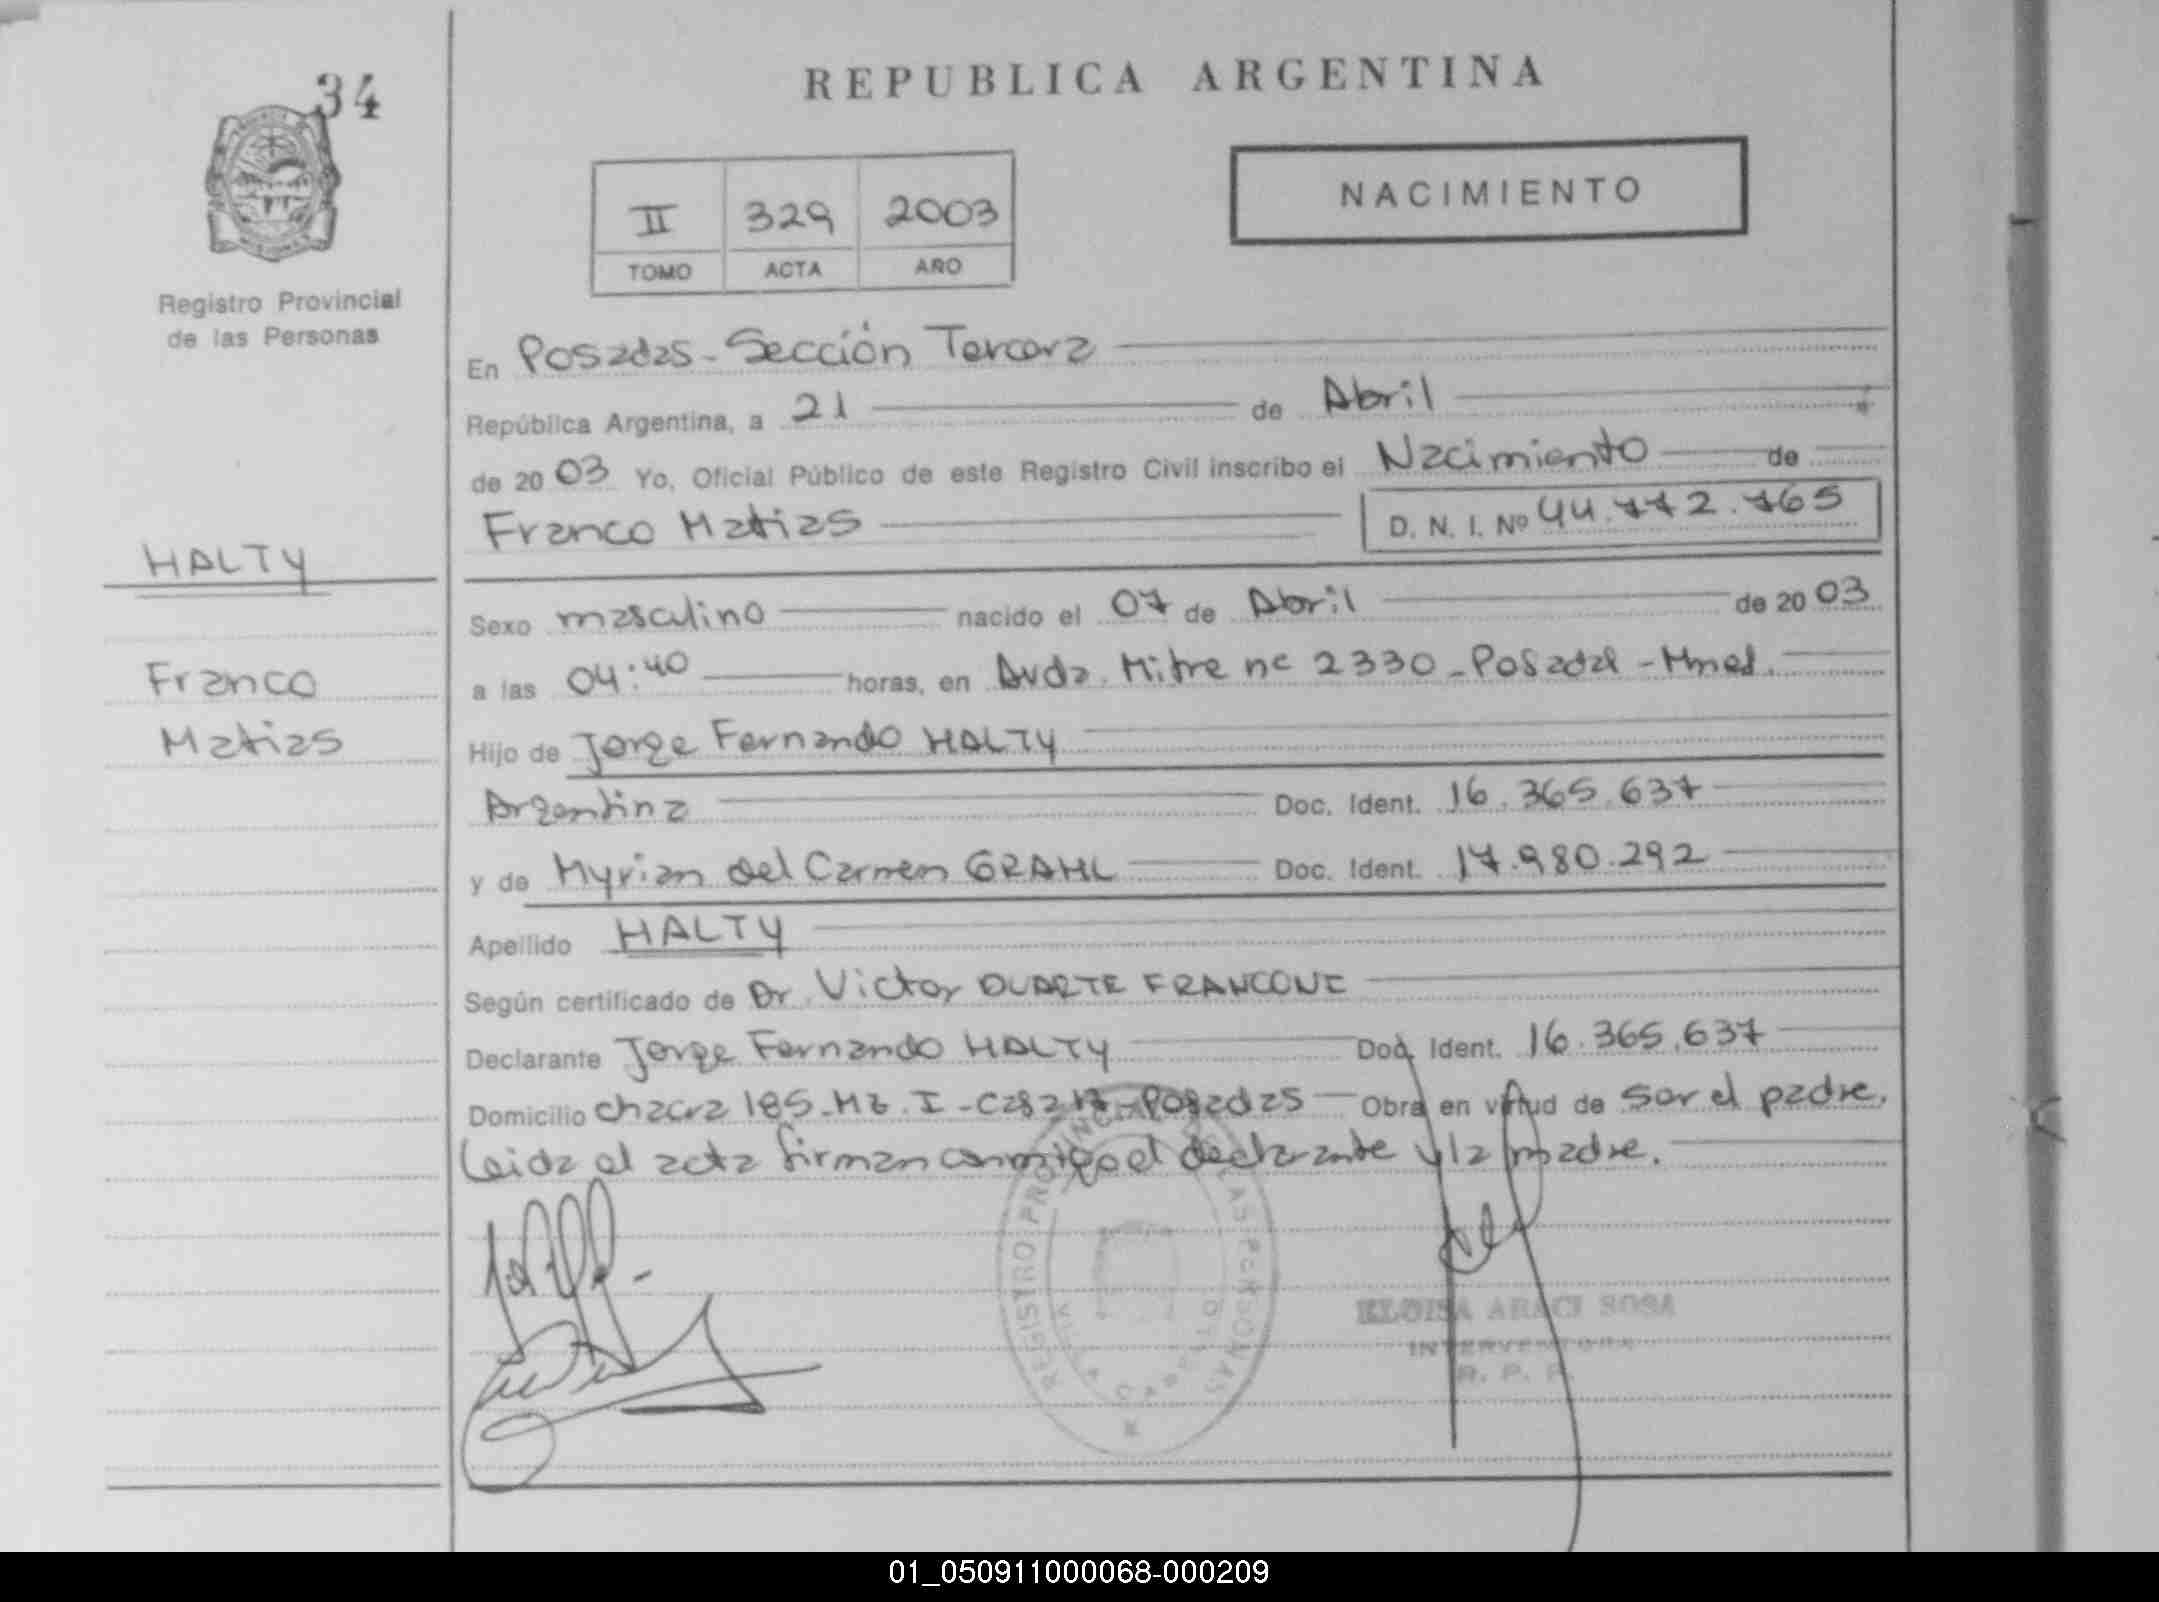 34
REPUBLICA ARGENTINA
II 329 2003
TOMO ACTA AÑO
NACIMIENTO
Registro Provincial
de las Personas
En Posadas - Sección Tercera
República Argentina, a 21 de Abril
de 2003 Yo, Oficial Público de este Registro Civil inscribo el Nacimiento de
Franco Matias D. N. I. Nº 44.772.765
HALTY
Franco
Matias
Sexo masculino nacido el 07 de Abril de 2003
a las 04:40 horas, en Avda. Mitre nº 2330 - Posadas - Mnes.
Hijo de Jorge Fernando HALTY
Argentina Doc. Ident. 16.365.637
y de Myrian del Carmen GRAHL Doc. Ident. 17.980.292
Apellido HALTY
Según certificado de Dr. Victor DUARTE FRANCONE
Declarante Jorge Fernando HALTY Doc. Ident. 16.365.637
Domicilio chacra 185 - Mz. I - Casa 17 - Posadas Obra en virtud de ser el padre.
Leida el acta firman conmigo el declarante y la madre.
REGISTRO PROVINCIAL DE LAS PERSONAS
ELOISA ARACI SOSA
INTERVENTORA
R. P. P.
01_050911000068-000209